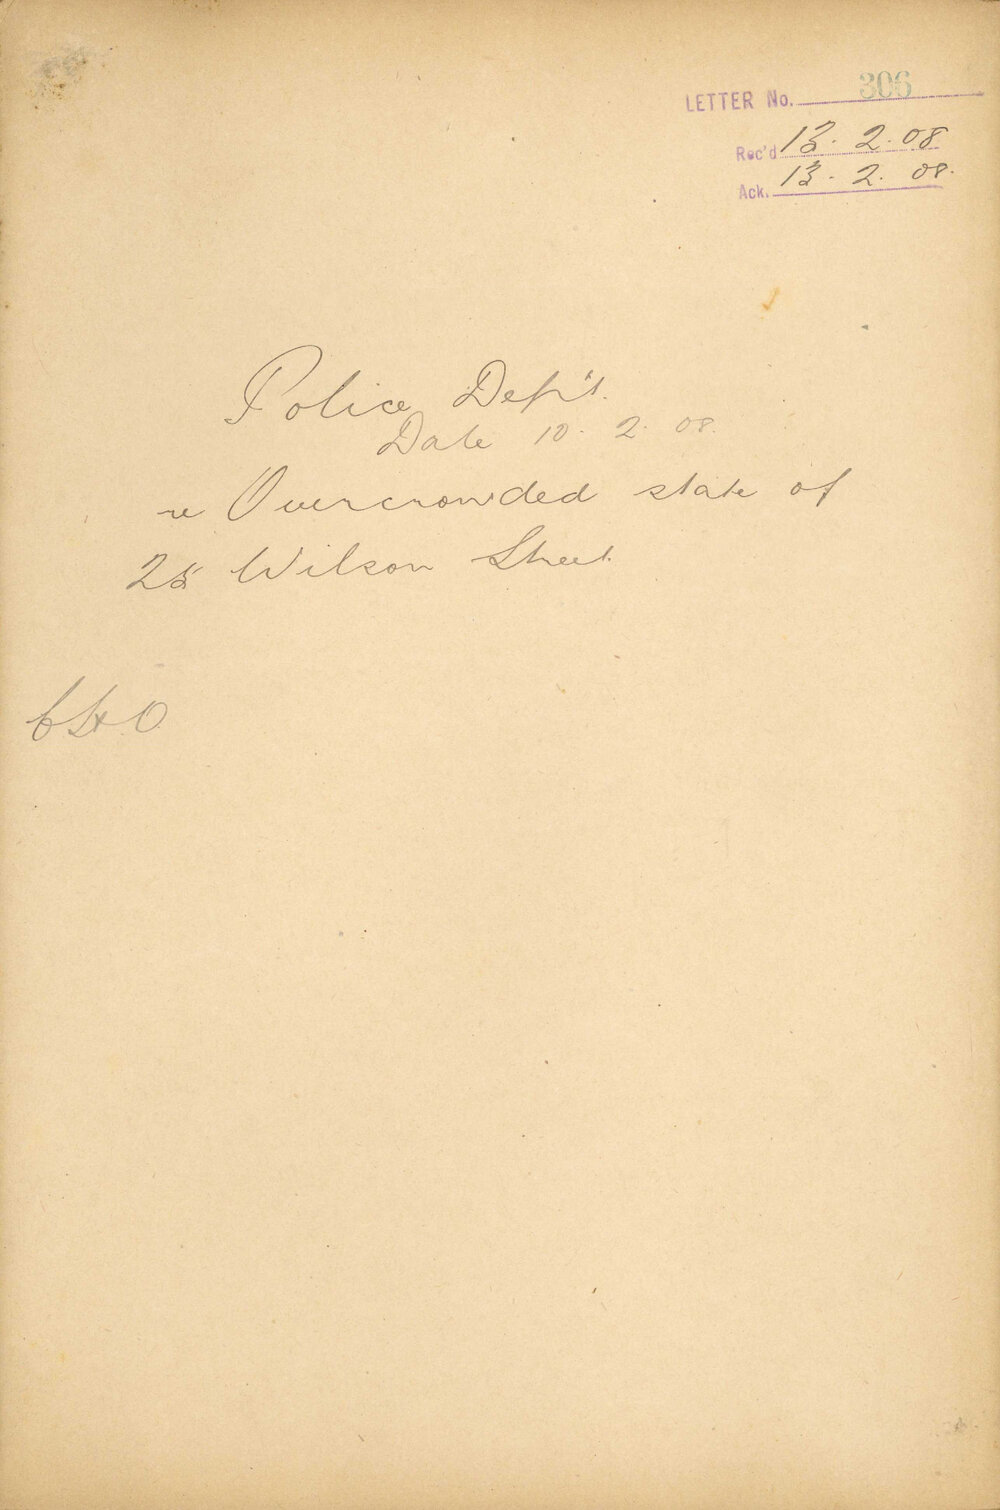 LETTER No. 306
Rec'd 13. 2. 08
Ack. 13. 2. 08.
Police Dep't.
Date 10. 2. 08.
re Overcrowded state of
25 Wilson Street